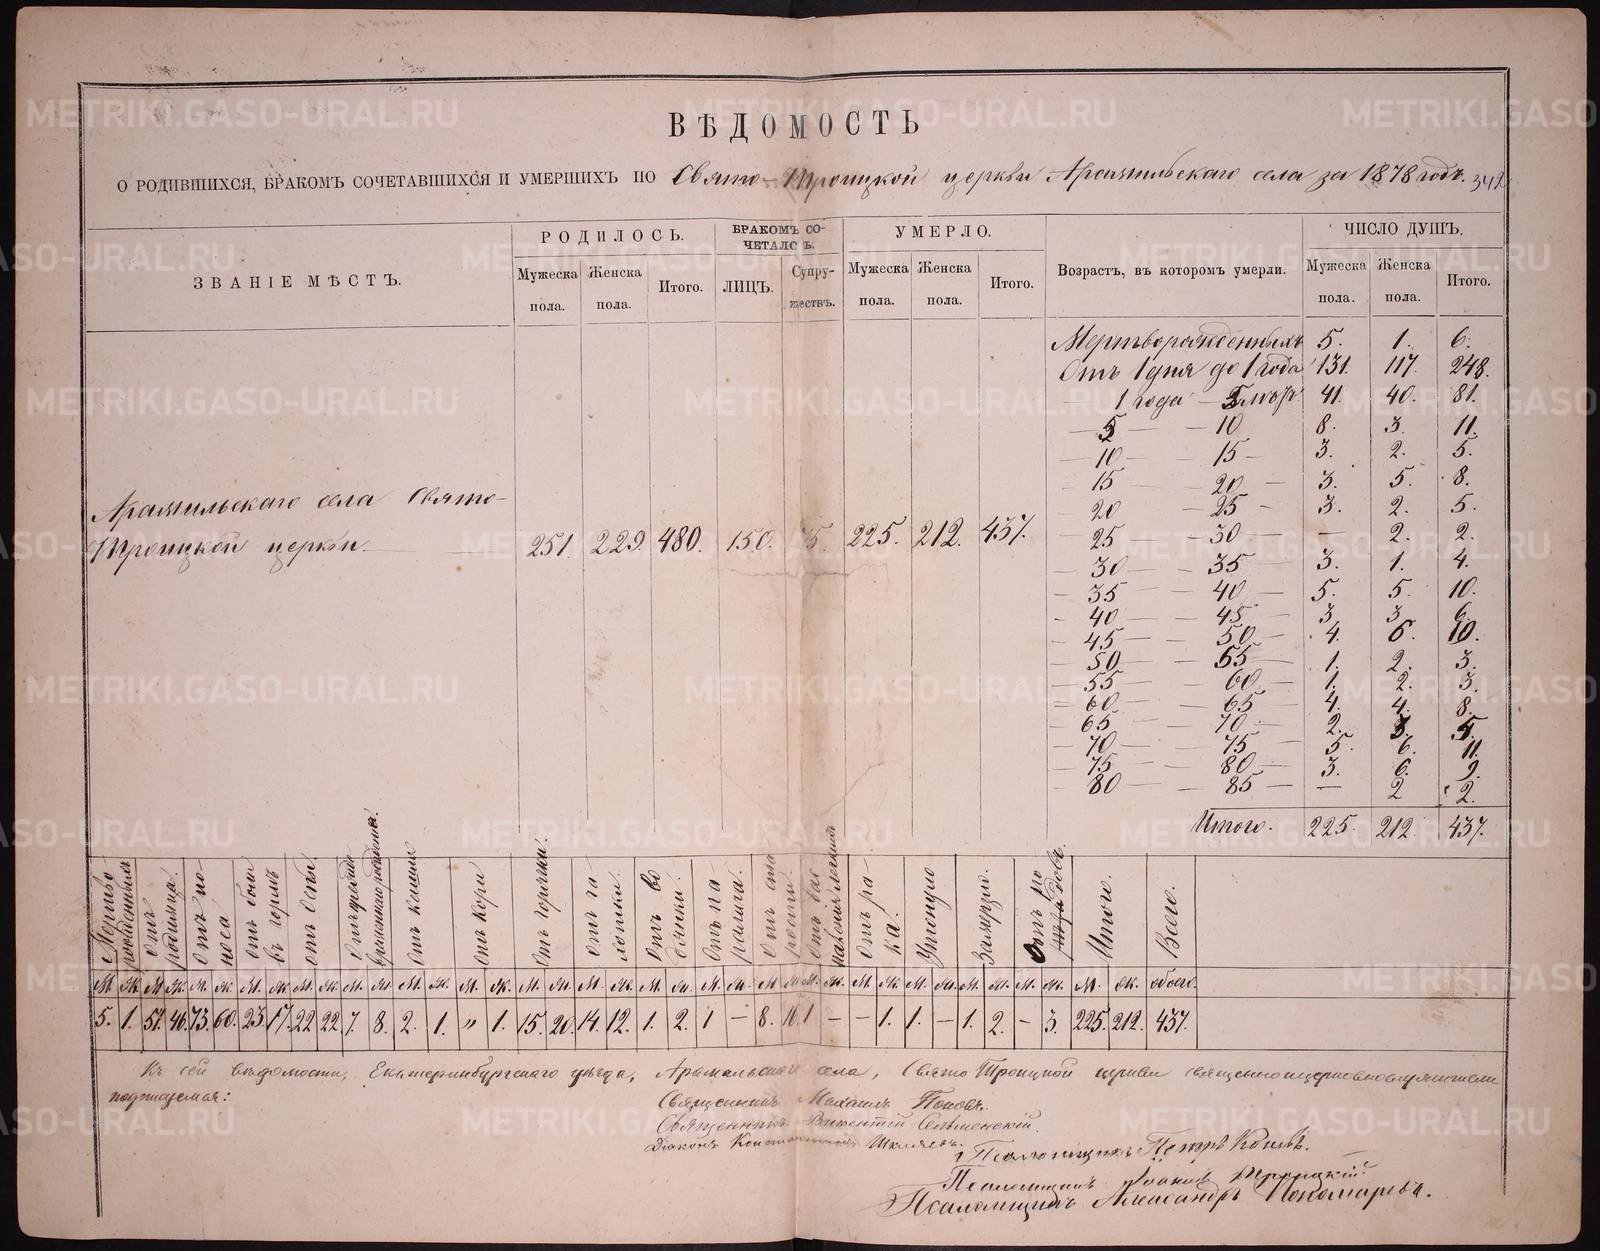 ВѢДОМОСТЬ
О РОДИВШИХСЯ, БРАКОМЪ СОЧЕТАВШИХСЯ И УМЕРШИХЪ ПО Свято-Троицкой церкви Арамильскаго села за 1878 годъ. 342
ЗВАНІЕ МѢСТЪ. РОДИЛОСЬ. БРАКОМЪ СОЧЕТАЛОСЬ. УМЕРЛО. Возрастъ, въ которомъ умерли. ЧИСЛО ДУШЪ.
Мужеска пола. Женска пола. Итого. ЛИЦЪ. Супружествъ. Мужеска пола. Женска пола. Итого. Мужеска пола. Женска пола. Итого.
Мертворожденныхъ 5. 1. 6.
Отъ 1 дня до 1 года 131. 117. 248.
— 1 года — 5 41. 40. 81.
— 5 — — 10 8. 3. 11.
— 10 — — 15 — 3. 2. 5.
— 15 — — 20 — 3. 5. 8.
— 20 — — 25 — 3. 2. 5.
— 25 — — 30 — — 2. 2.
— 30 — — 35 — 3. 1. 4.
— 35 — — 40 — 5. 5. 10.
— 40 — — 45 — 3. 3. 6.
— 45 — — 50 — 4. 6. 10.
— 50 — — 55 — 1. 2. 3.
— 55 — — 60 — 1. 2. 3.
— 60 — — 65 — 4. 4. 8.
— 65 — — 70 — 2. 3. 5.
— 70 — — 75 — 5. 6. 11.
— 75 — — 80 — 3. 6. 9.
— 80 — — 85 — — 2 2.
Итого. 225. 212. 437.
Арамильскаго села Свято-
Троицкой церкви. 251. 229. 480. 150. 75. 225. 212. 437.
Мертворожденныхъ Отъ родимца Отъ поноса Отъ боли въ горлѣ Отъ оспы Отъ кашля Отъ кори Отъ горячки. Отъ чахотки. Отъ водянки. Отъ паралича. Отъ старости. Отъ рака. Утонуло Замерзло. Отъ Итого. Всего.
М. Ж. М. Ж. М. Ж. М. Ж. М. Ж. М. Ж. М. Ж. М. Ж. М. Ж. М. Ж. М. Ж. М. Ж. М. Ж. М. Ж. М. Ж. М. Ж. М. Ж. М. Ж. М. Ж. обоего.
5. 1. 51. 46. 73. 60. 23. 17. 22. 22. 7. 8. 2. 1. „ 1. 15. 20. 14. 12. 1. 2. 1 — 8. 10. 1 — — 1. 1. — 1. 2. — 3. 225. 212. 437.
Къ сей вѣдомости, Екатеринбургскаго уѣзда, Арамильскаго села, Свято Троицкой церкви священноцерковнослужители
подписуемся:
Священникъ Михаилъ Поповъ.
Священникъ Викентій Сельменскій.
Діаконъ Константинъ Шиляевъ.
Псаломщикъ Петръ
Псаломщикъ Троицкій.
Псаломщикъ Александръ Пономаревъ.
METRIKI.GASO-URAL.RU